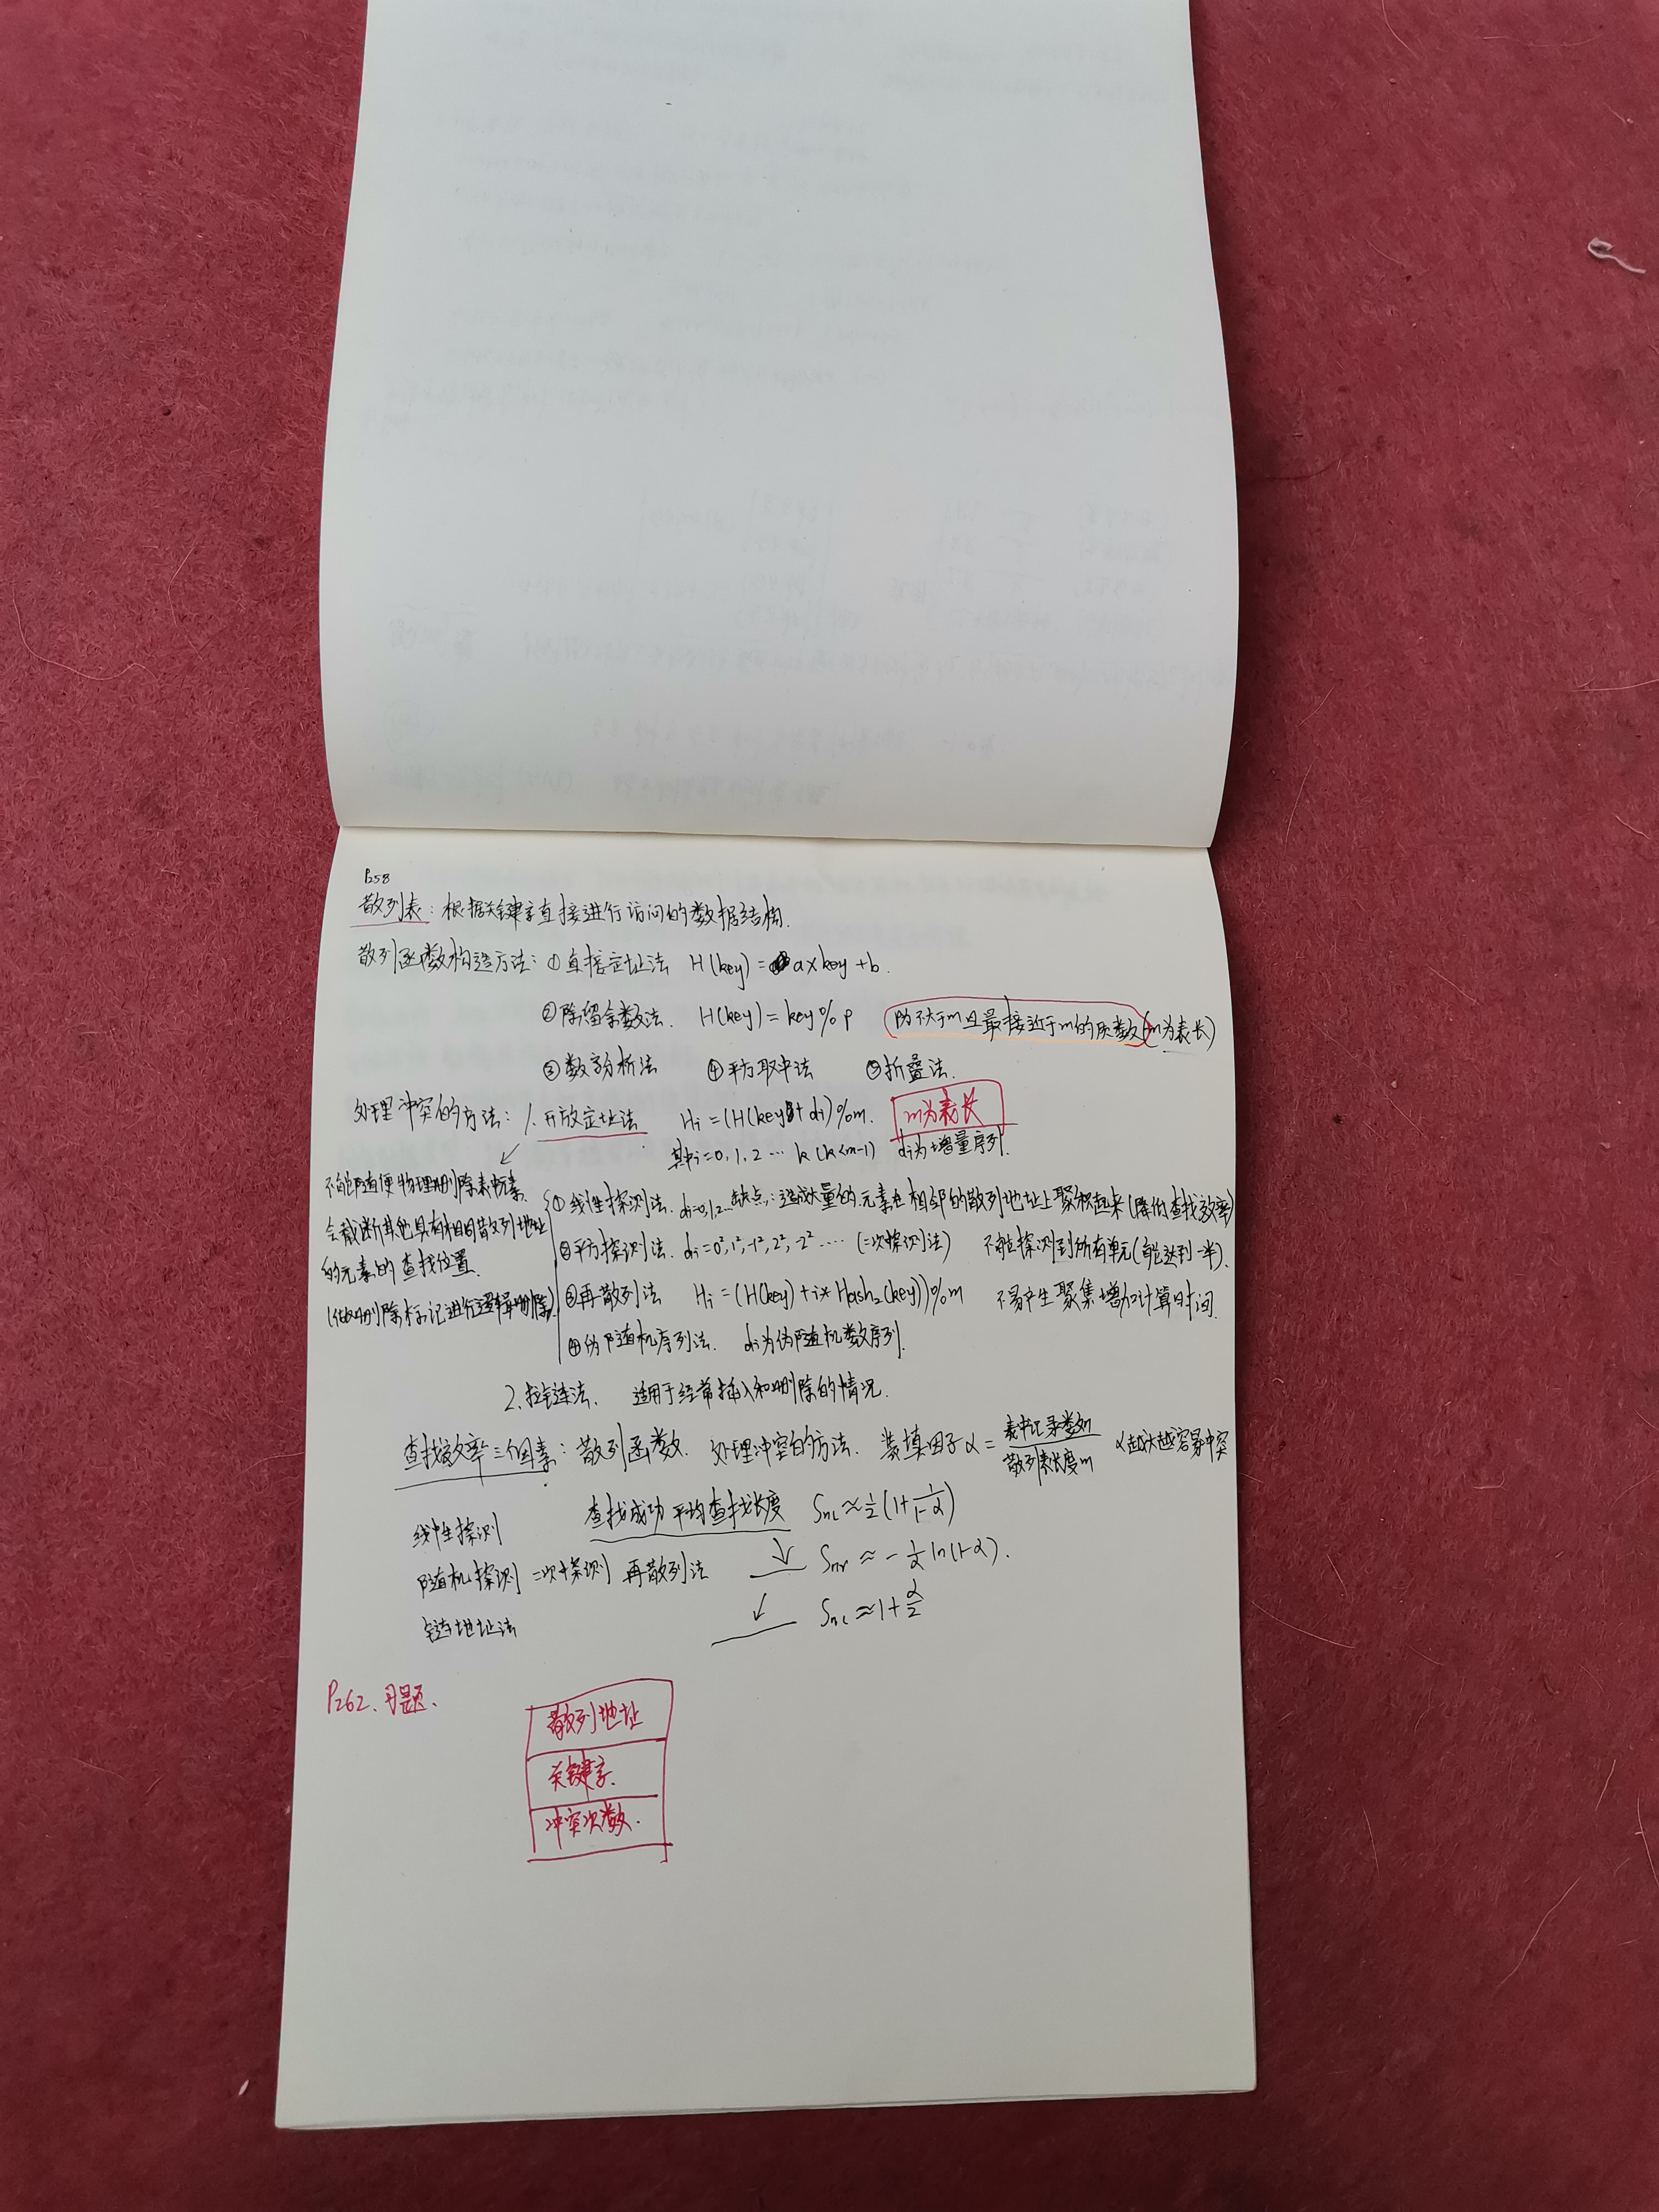 P258
散列表：根据关键字直接进行访问的数据结构.
散列函数构造方法：①直接定址法 H(key)=a×key+b.
②除留余数法. H(key)=key%p p为不大于m且最接近于m的质数(m为表长)
③数字分析法 ④平方取中法 ⑤折叠法.
处理冲突的方法：1.开放定址法 Hi=(H(key)+di)%m. m为表长
其中i=0,1,2…k(k<m-1) di为增量序列.
不能随便物理删除表中元素.
会截断其他具有相同散列地址
的元素的查找位置.
(做删除标记进行逻辑删除)
①线性探测法. di=0,1,2… 缺点：造成大量的元素在相邻的散列地址上聚积起来(降低查找效率)
②平方探测法. di=0²,1²,-1²,2²,-2²…… (二次探测法) 不能探测到所有单元(能达到一半).
③再散列法 Hi=(H(key)+i*Hash₂(key))%m 不易产生聚集增加计算时间.
④伪随机序列法. di为伪随机数序列.
2.拉链法. 适用于经常插入和删除的情况.
查找效率三个因素：散列函数. 处理冲突的方法. 装填因子α=表中记录数n/散列表长度m α越大越容易冲突
线性探测 查找成功平均查找长度 Snl≈½(1+1/(1-α))
随机探测 二次探测 再散列法 ↓ Snr≈-1/α ln(1-α).
链地址法 ↙ Snc≈1+α/2
P262.母题.
散列地址
关键字.
冲突次数.